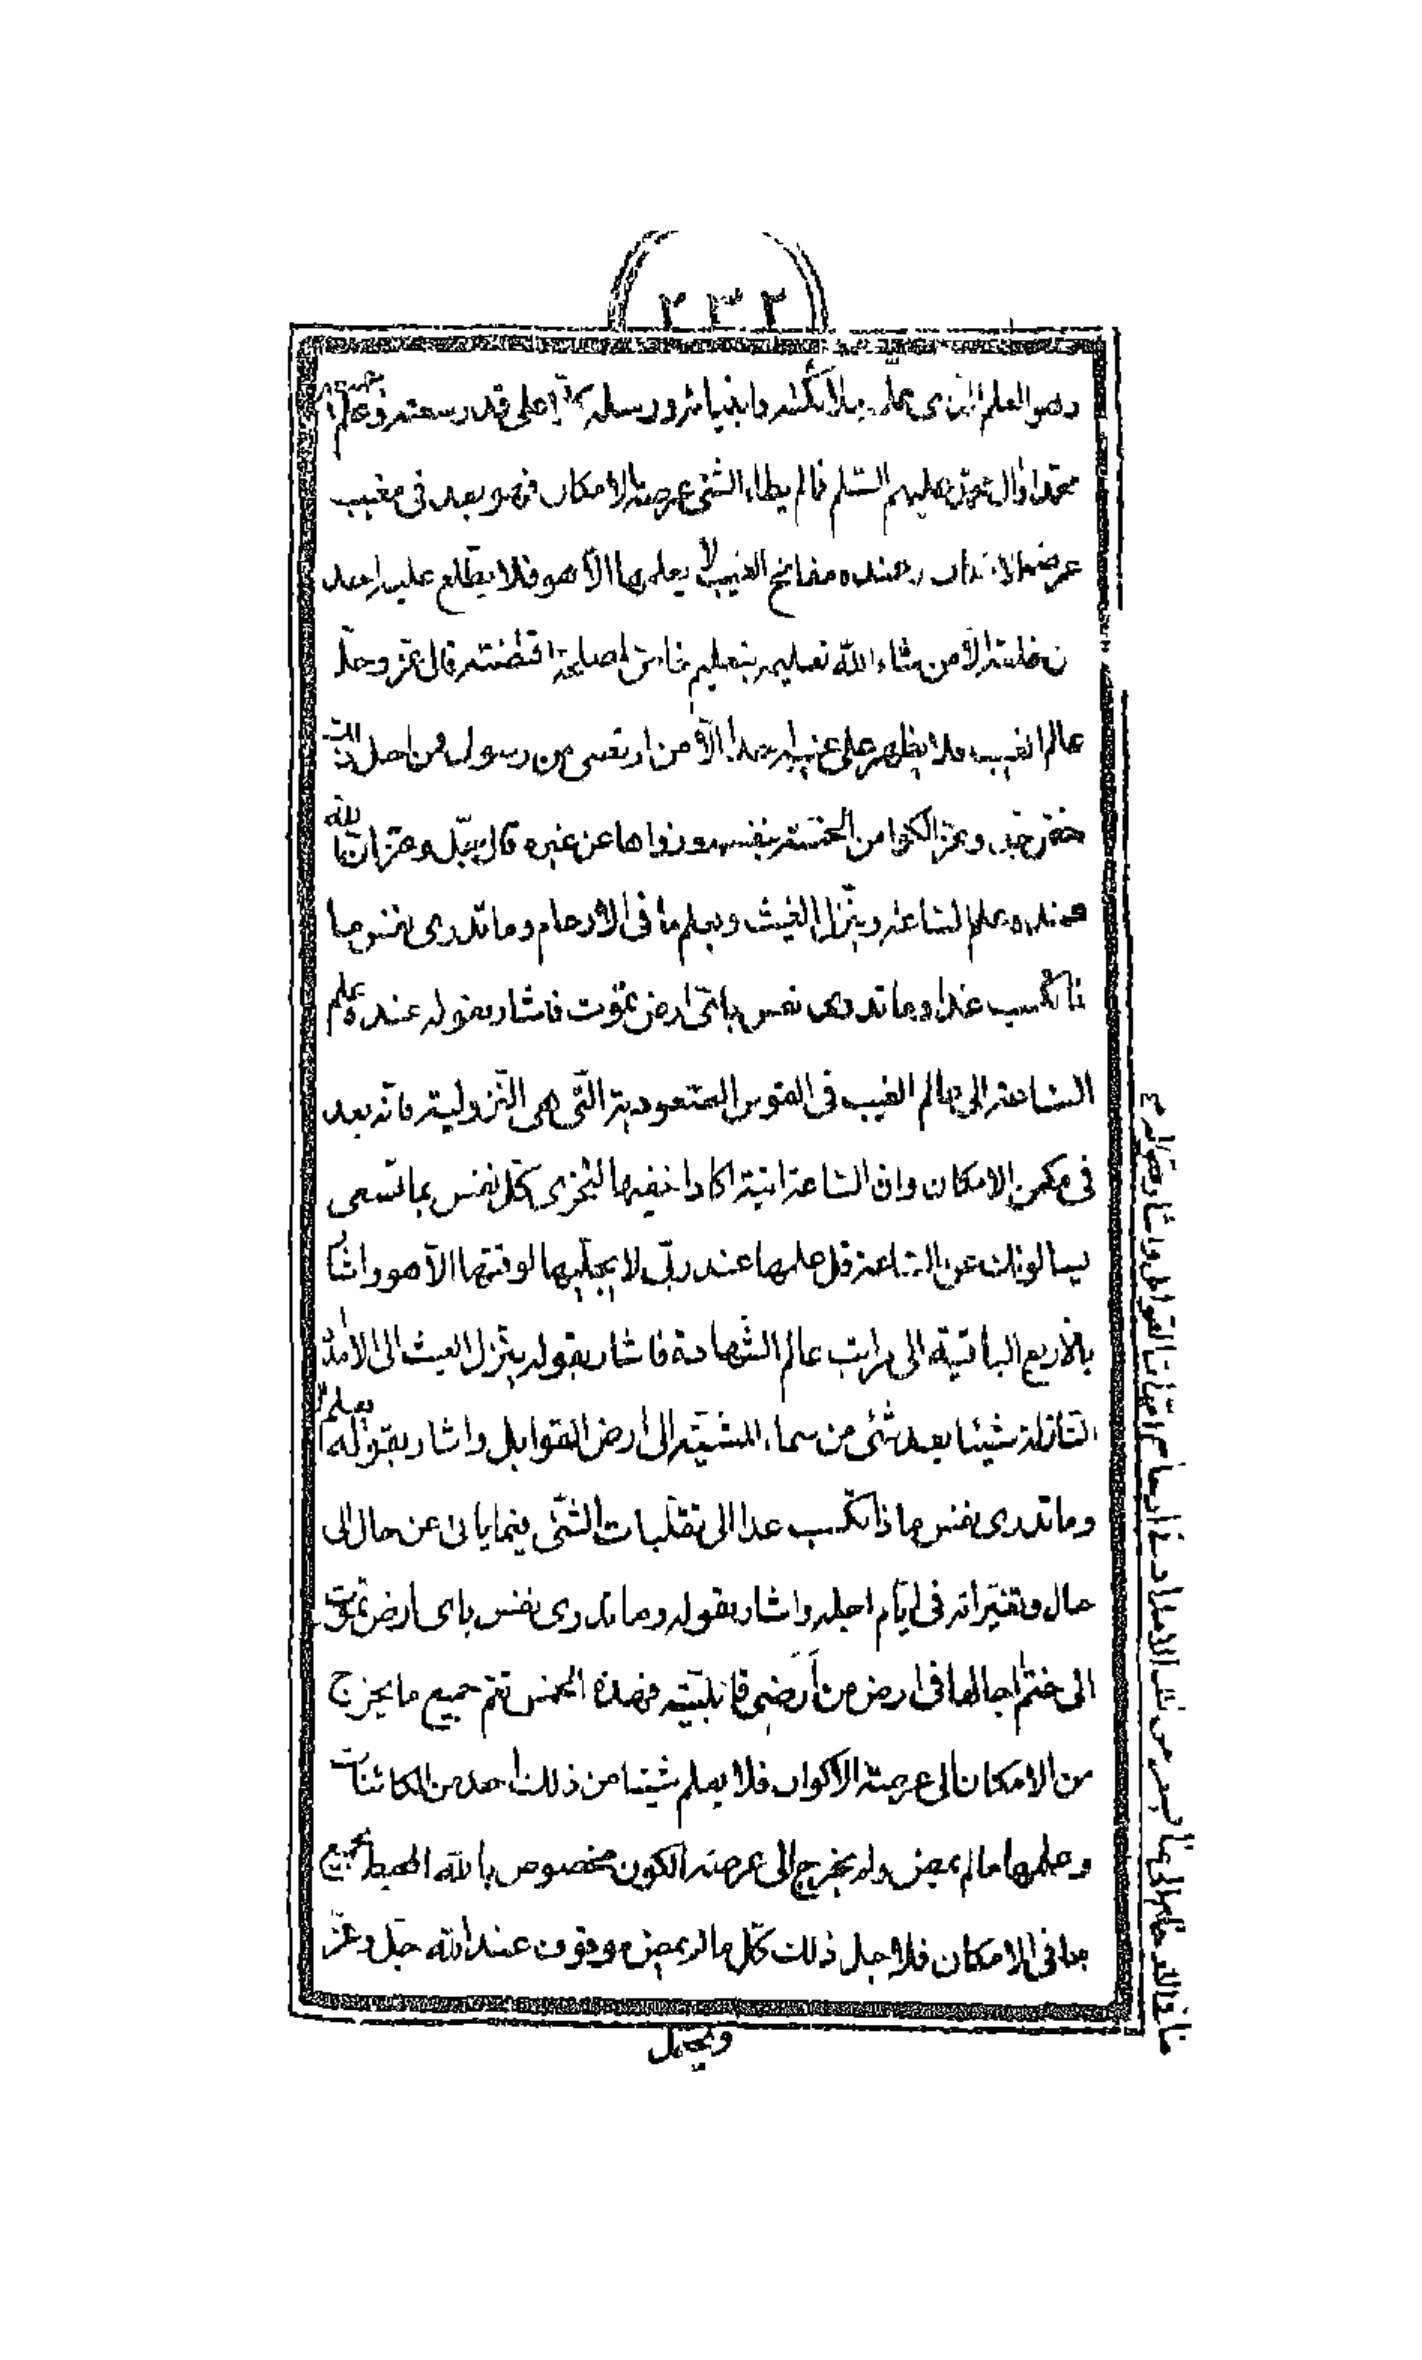 ٢٣٢
وهو العلم الذى علمه ملائكته وانبيائه ورسله كلا على قدر سعته وعلم جميعه
محمدا وآل محمد عليهم السلم فما لم يطاء الشئ عرصة الامكان فهو بعد فى مغيب
عرصة وعنده مفاتح الغيب لا يعلمها الا هو فلا يطلع عليه احد
من خلقه الا من شاء الله تعليمه بتعليم خاص لمصلحة اقتضته قال عز وجل
عالم الغيب فلا يظهر على غيبه احدا الا من ارتضى من رسول فمن اجل ذلك
خص جل وعز الكوامن الخمسة بنفسه وزواها عن غيره قال جل وعز ان الله
عنده علم الساعة وينزل الغيث ويعلم ما فى الارحام وما تدرى نفس ما
ذا تكسب غدا وما تدرى نفس باى ارض تموت فاشار بقوله عنده علم
الساعة الى عالم الغيب فى القوس الصعودية التى هى النزولية فانه بعد
فى مكمن الامكان وان الساعة اتية اكاد اخفيها لتجزى كل نفس بما تسعى
يسالونك عن الساعة قل علمها عند ربى لا يجليها لوقتها الا هو واشار
بالاربع الباقية الى مراتب عالم الشهادة فاشار بقوله ينزل الغيث الى الامداد
النازلة شيئا بعد شئ من سماء المشية الى ارض القوابل واشار بقوله يعلم
وما تدرى نفس ماذا تكسب غدا الى تقلبات الشئ فيما ياتى عن حال الى
حال وتغيراته فى ايام اجله واشار بقوله وما تدرى نفس باى ارض تموت
الى ختم اجالها فى ارض من ارضى قابليته فهذه الخمس تعم جميع ما يخرج
من الامكان الى عرصة الاكوان فلا يعلم شيئا من ذلك احد من الكائنات
وعلمها ما لم يمض ولم يخرج الى عرصة الكون مخصوص بالله المحيط بجميع
ما فى الامكان فلاجل ذلك كل ما لم يمض موقوف عند الله جل وعز
ويحتمل
ما فى الارحام امهات القوابل واشار بقوله